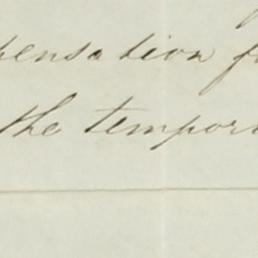 pensation f
the tempor